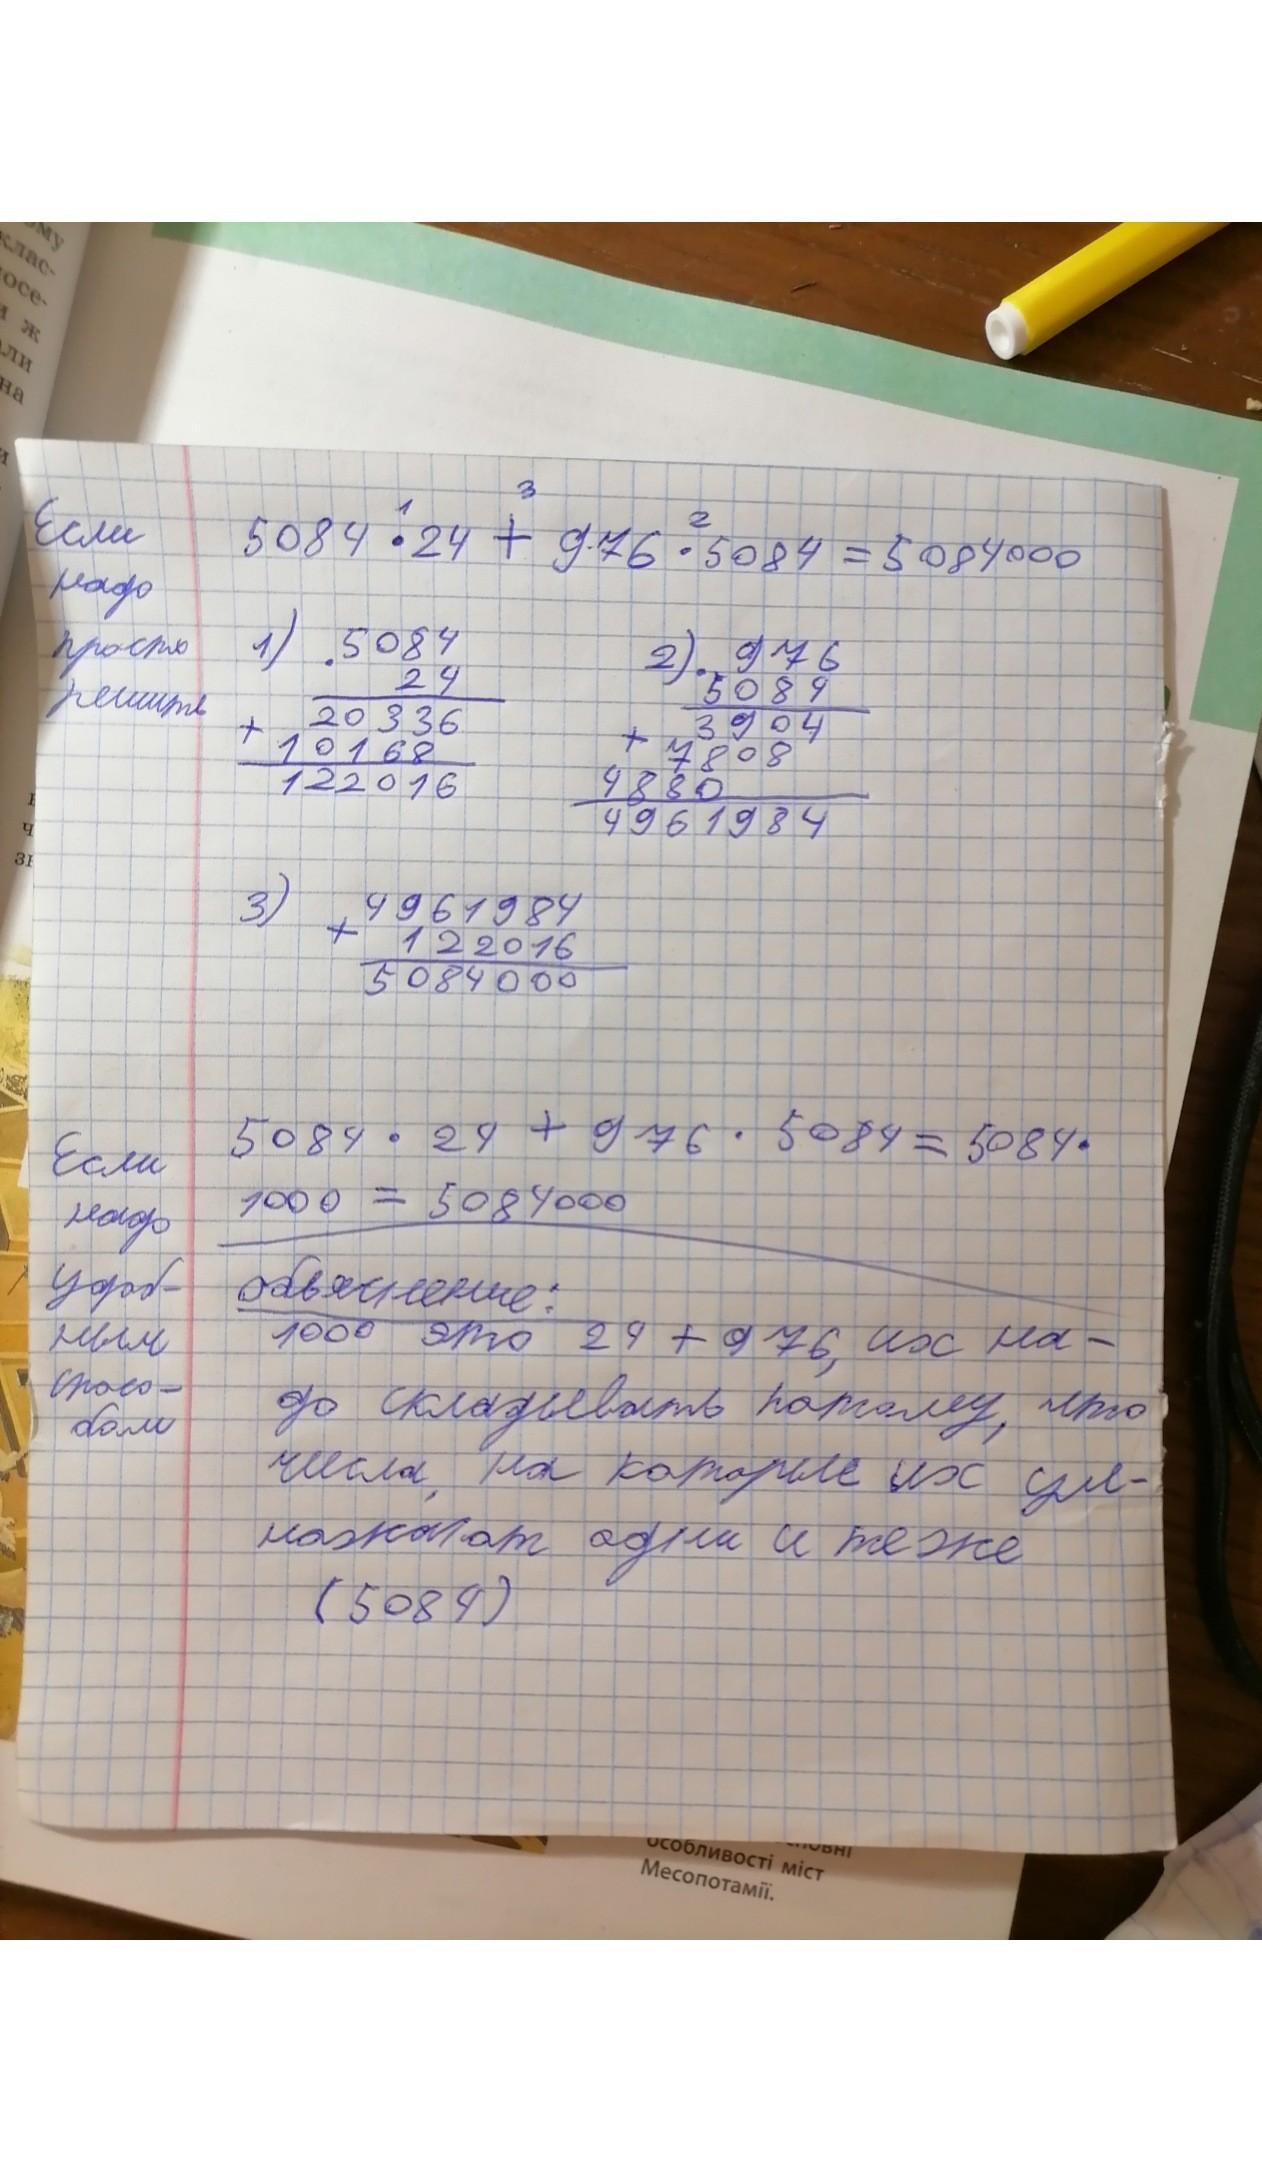 ому
клас-
посе-
и ж
али
на
и
Если
надо
просто
решить
1 3 2
5084 · 24 + 976 · 5084 = 5084000
1) 5084
24
+ 20336
10168
122016
2) 976
5084
+ 3904
7808
4880
4961984
3) 4961984
+ 122016
5084000
Если
надо
удоб-
ным
спосо-
бом
5084 · 24 + 976 · 5084 = 5084 ·
1000 = 5084000
объяснение:
1000 это 24 + 976, их на-
до складывать потому, что
числа, на которые их ум-
ножают одни и теже
(5084)
особливості міст
Месопотамії.